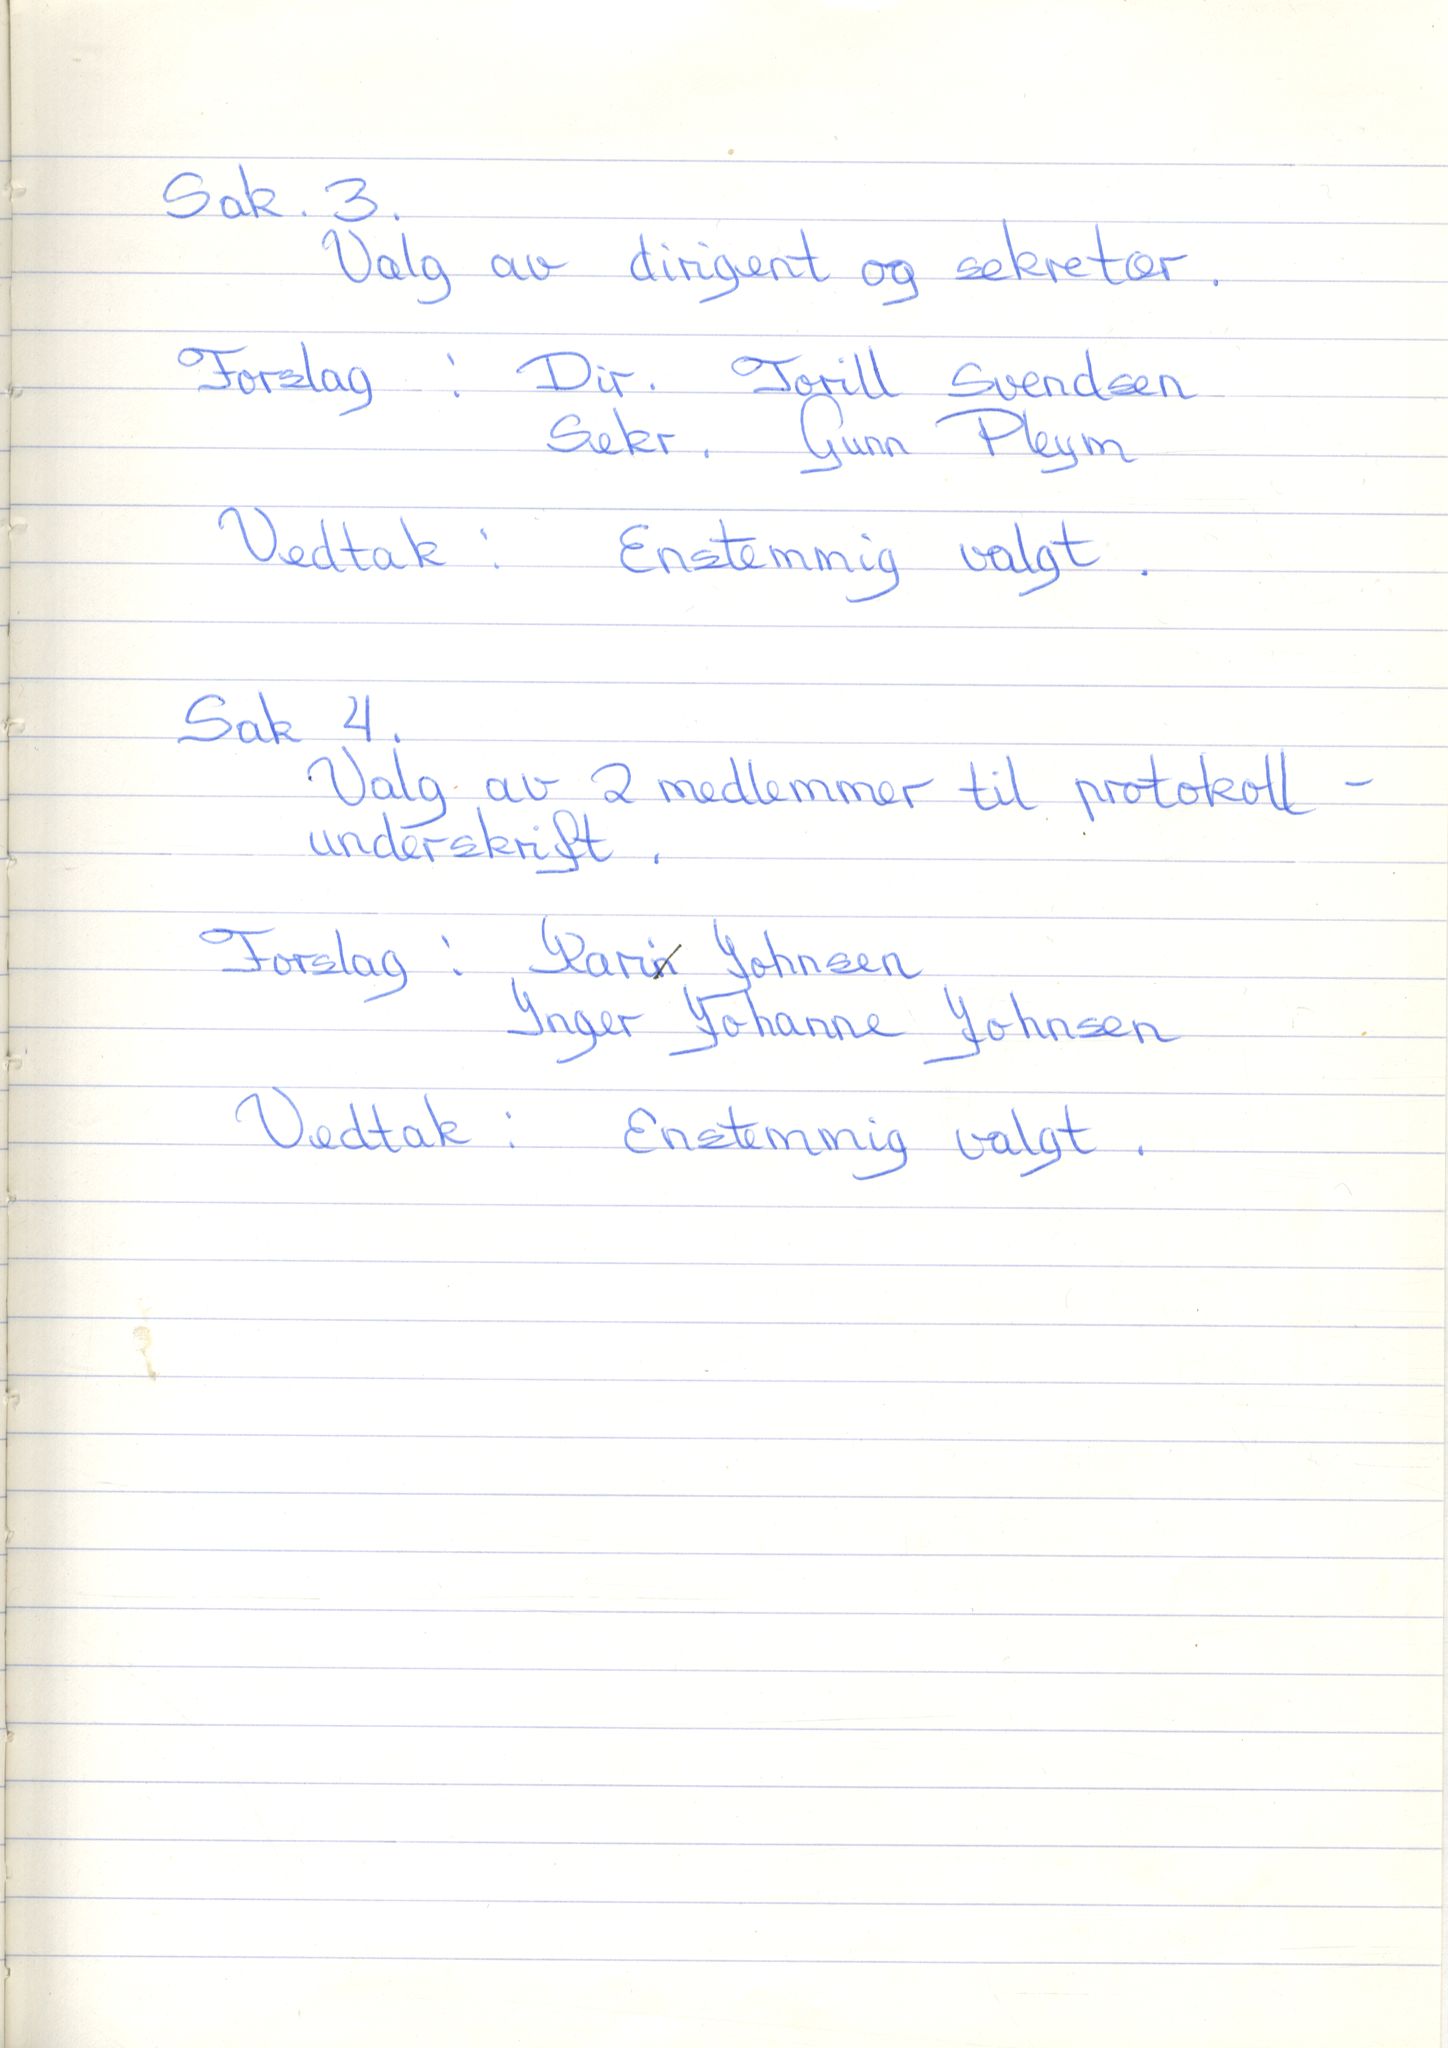 Sak. 3.
Valg av dirigent og sekretær.
Forslag : Dir. Torill Svendsen
Sekr. Gunn Pleym
Vedtak : Enstemmig valgt.
Sak 4.
Valg av 2 medlemmer til protokoll-
underskrift.
Forslag : Karin Johnsen
Inger Johanne Johnsen
Vedtak : Enstemmig valgt.